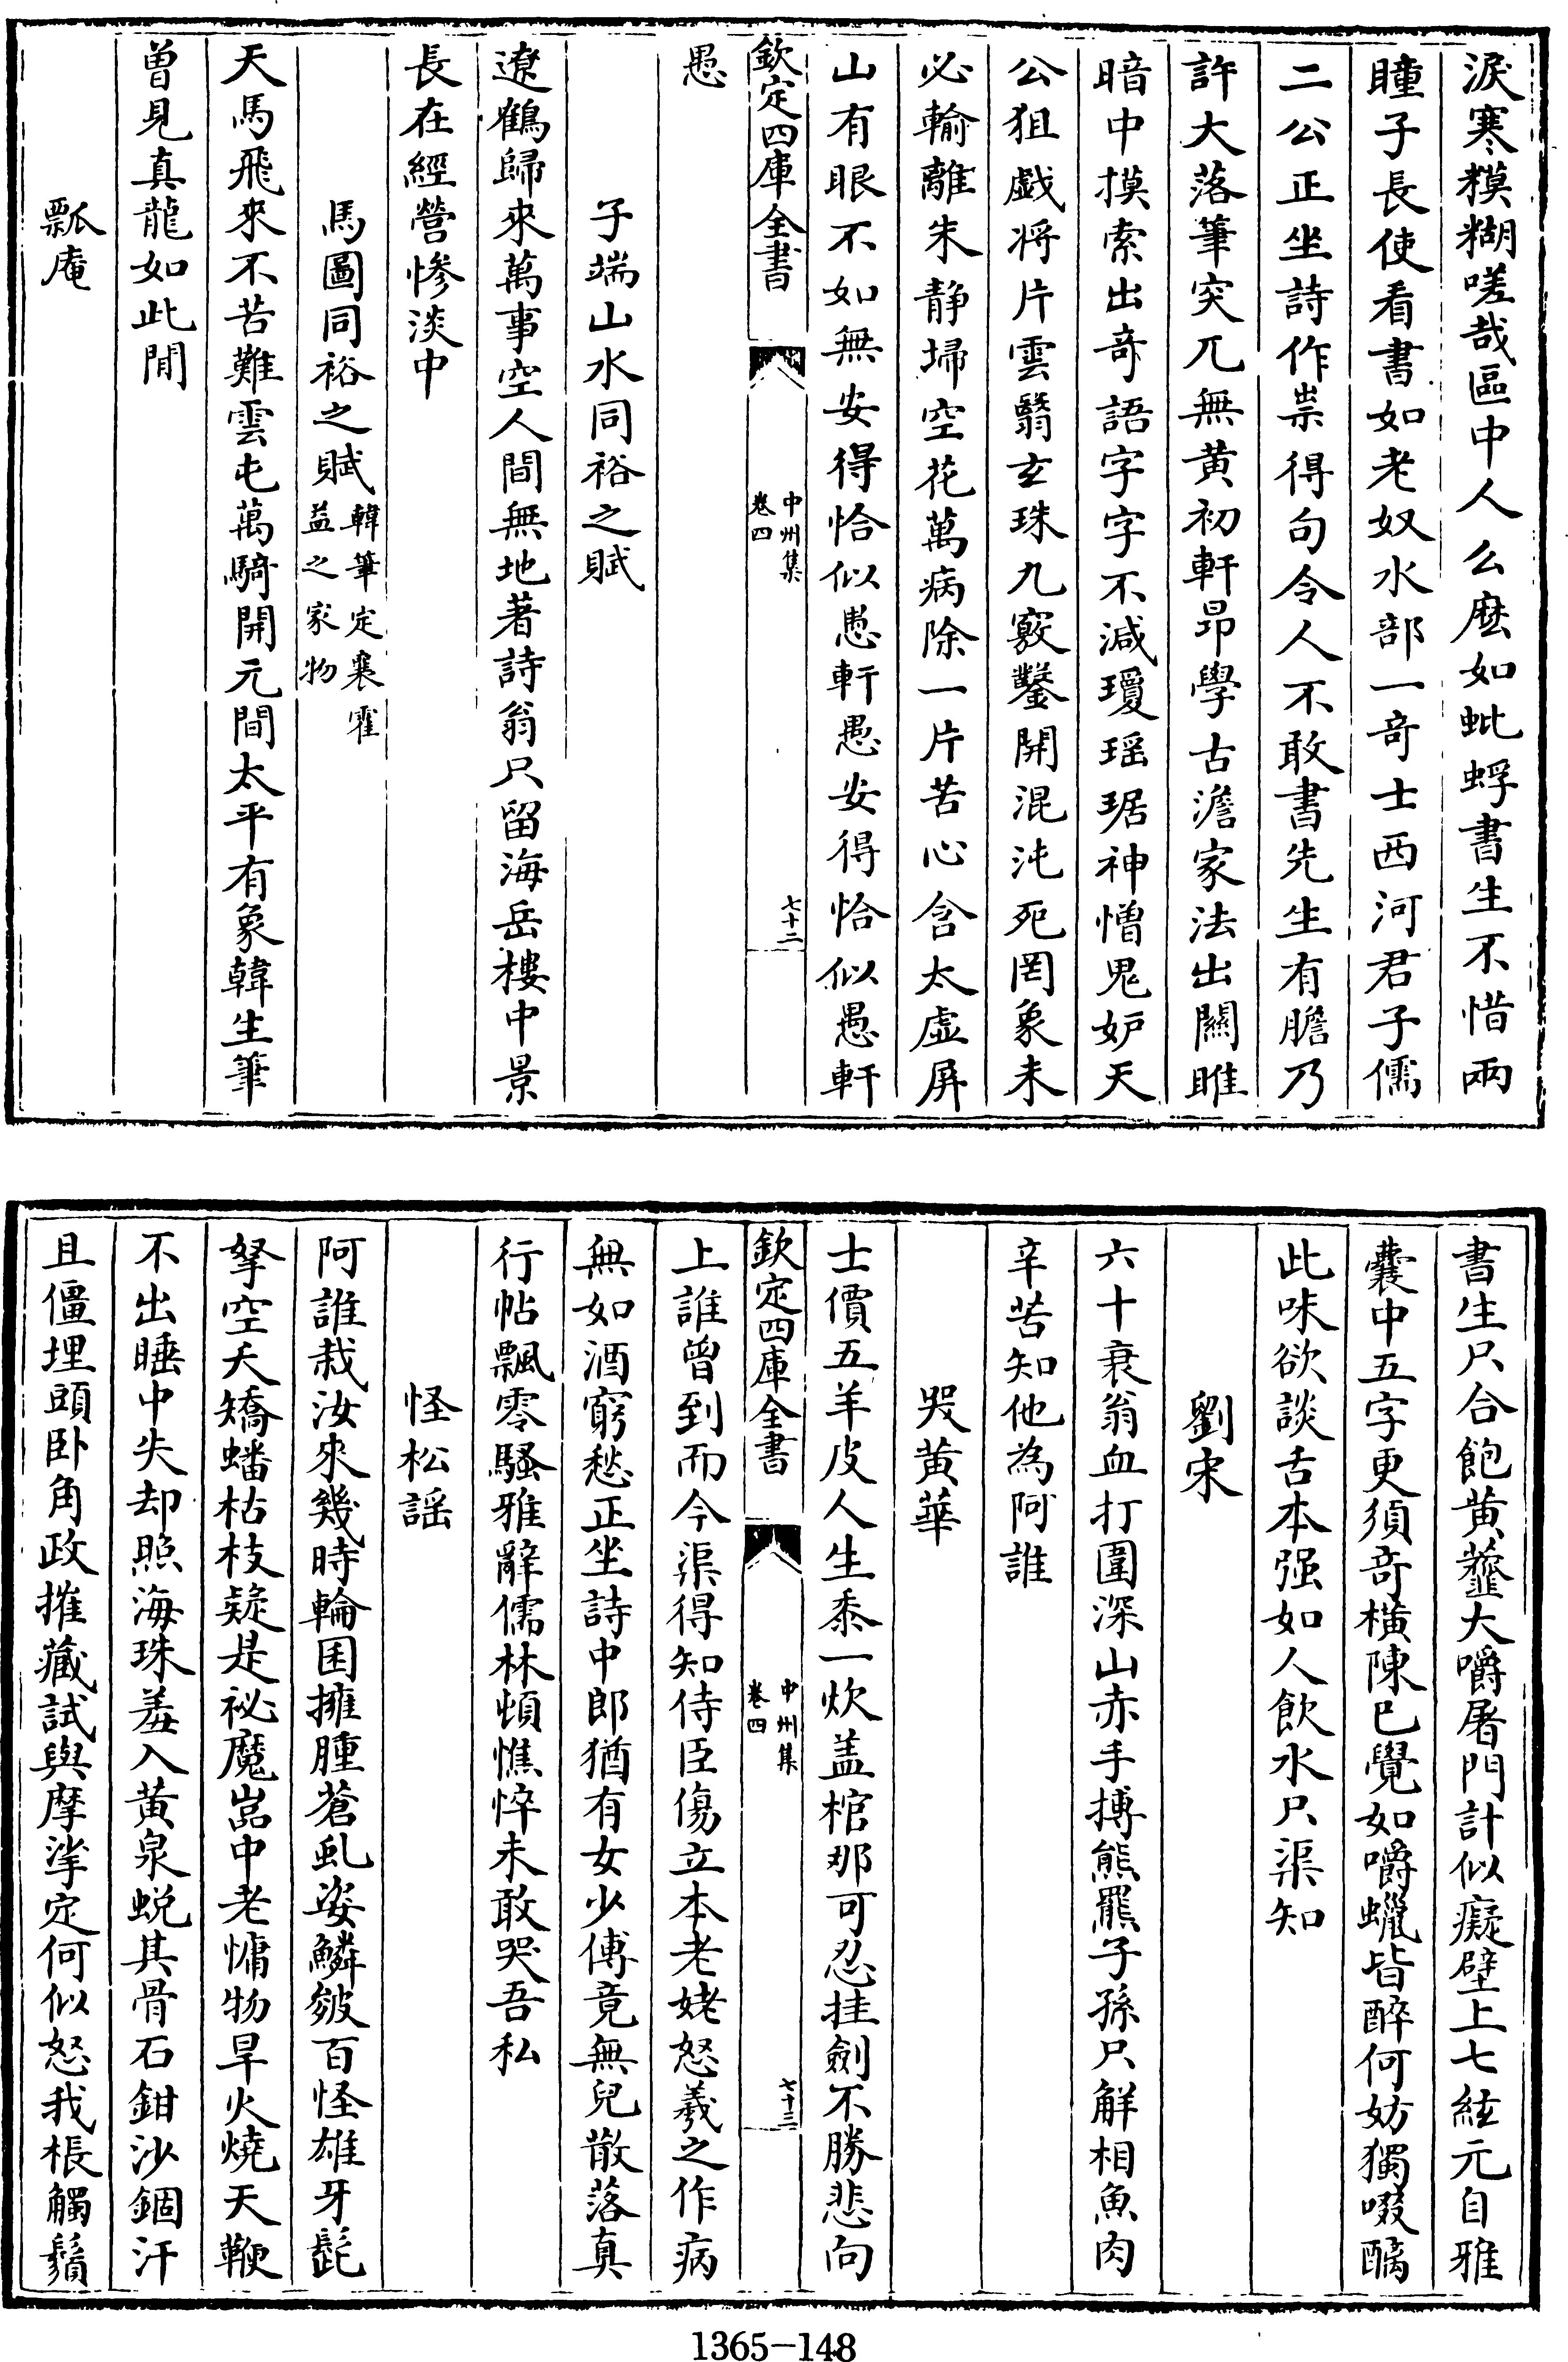 淚寒糢糊嗟哉區中人么麽如虮蜉書生不惜兩
瞳子長使看書如老奴水部一竒士西河君子儒
二公正坐詩作祟得句令人不敢書先生有膽乃
許大落筆突兀無黄初軒昻學古澹家法出關雎
暗中摸索出竒語字字不減瓊瑶琚神憎鬼妒天
公狙戯将片雲翳玄珠九竅鑿開混沌死罔象未
必輸離朱静埽空花萬病除一片苦心含太虚屏
山有眼不如無安得恰似愚軒愚安得恰似愚軒
欽定四庫全書
中州集
卷四
七十二
愚
子端山水同裕之賦
遼鶴歸來萬事空人間無地著詩翁只留海岳樓中景
長在經營惨淡中
馬圖同裕之賦韓筆定襄霍
益之家物
天馬飛來不苦難雲屯萬騎開元間太平有象韓生筆
曽見真龍如此閒
瓢庵
書生只合飽黄虀大嚼屠門計似癡壁上七絃元自雅
囊中五字更須竒横陳已覺如嚼蠟皆醉何妨獨啜醨
此味欲談舌本强如人飲水只渠知
劉宋
六十衰翁血打圍深山赤手搏熊羆子孫只解相魚肉
辛苦知他為阿誰
哭黄華
士價五羊皮人生黍一炊盖棺那可忍挂劍不勝悲向
欽定四庫全書
中州集
卷四
七十三
上誰曾到而今渠得知侍臣傷立本老姥怒羲之作病
無如酒窮愁正坐詩中郎猶有女少傅竟無兒散落真
行帖飄零騷雅辭儒林頓憔悴未敢哭吾私
怪松謡
阿誰栽汝來幾時輪囷擁腫蒼虬姿鱗皴百怪雄牙髭
拏空夭矯蟠枯枝疑是祕魔嵓中老慵物旱火燒天鞭
不出睡中失却照海珠羞入黄泉蜕其骨石鉗沙錮汗
且僵埋頭卧角政摧藏試與摩挲定何似怒我棖觸鬚
1365-148